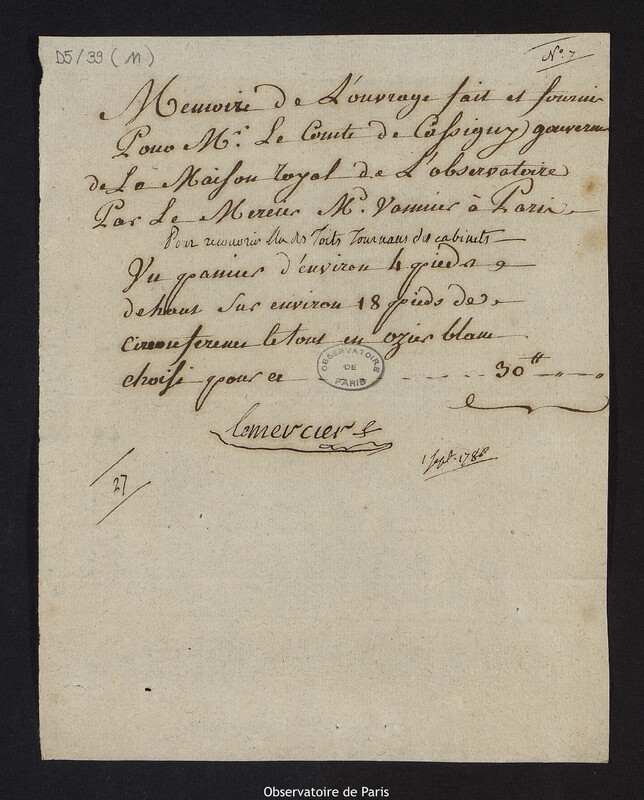 D5/39 (11)
N.° 7
Memoire de L'ouvrage fait et fournie
Pour Mr. Le Comte de Cassigny gouverneur
de La Maison royal de L'observatoire
Par Le Mercier Md. Vannier à Paris
Pour recouvrir un des Toits Tournans des cabinets
Un panier d'environ 4 pieds
de haut sur environ 18 pieds de
circonference le tout en ozier blanc
choisi pour ce 30 tt
OBSERVATOIRE DE PARIS
lemercier
1 Sept. 1786
27
Observatoire de Paris